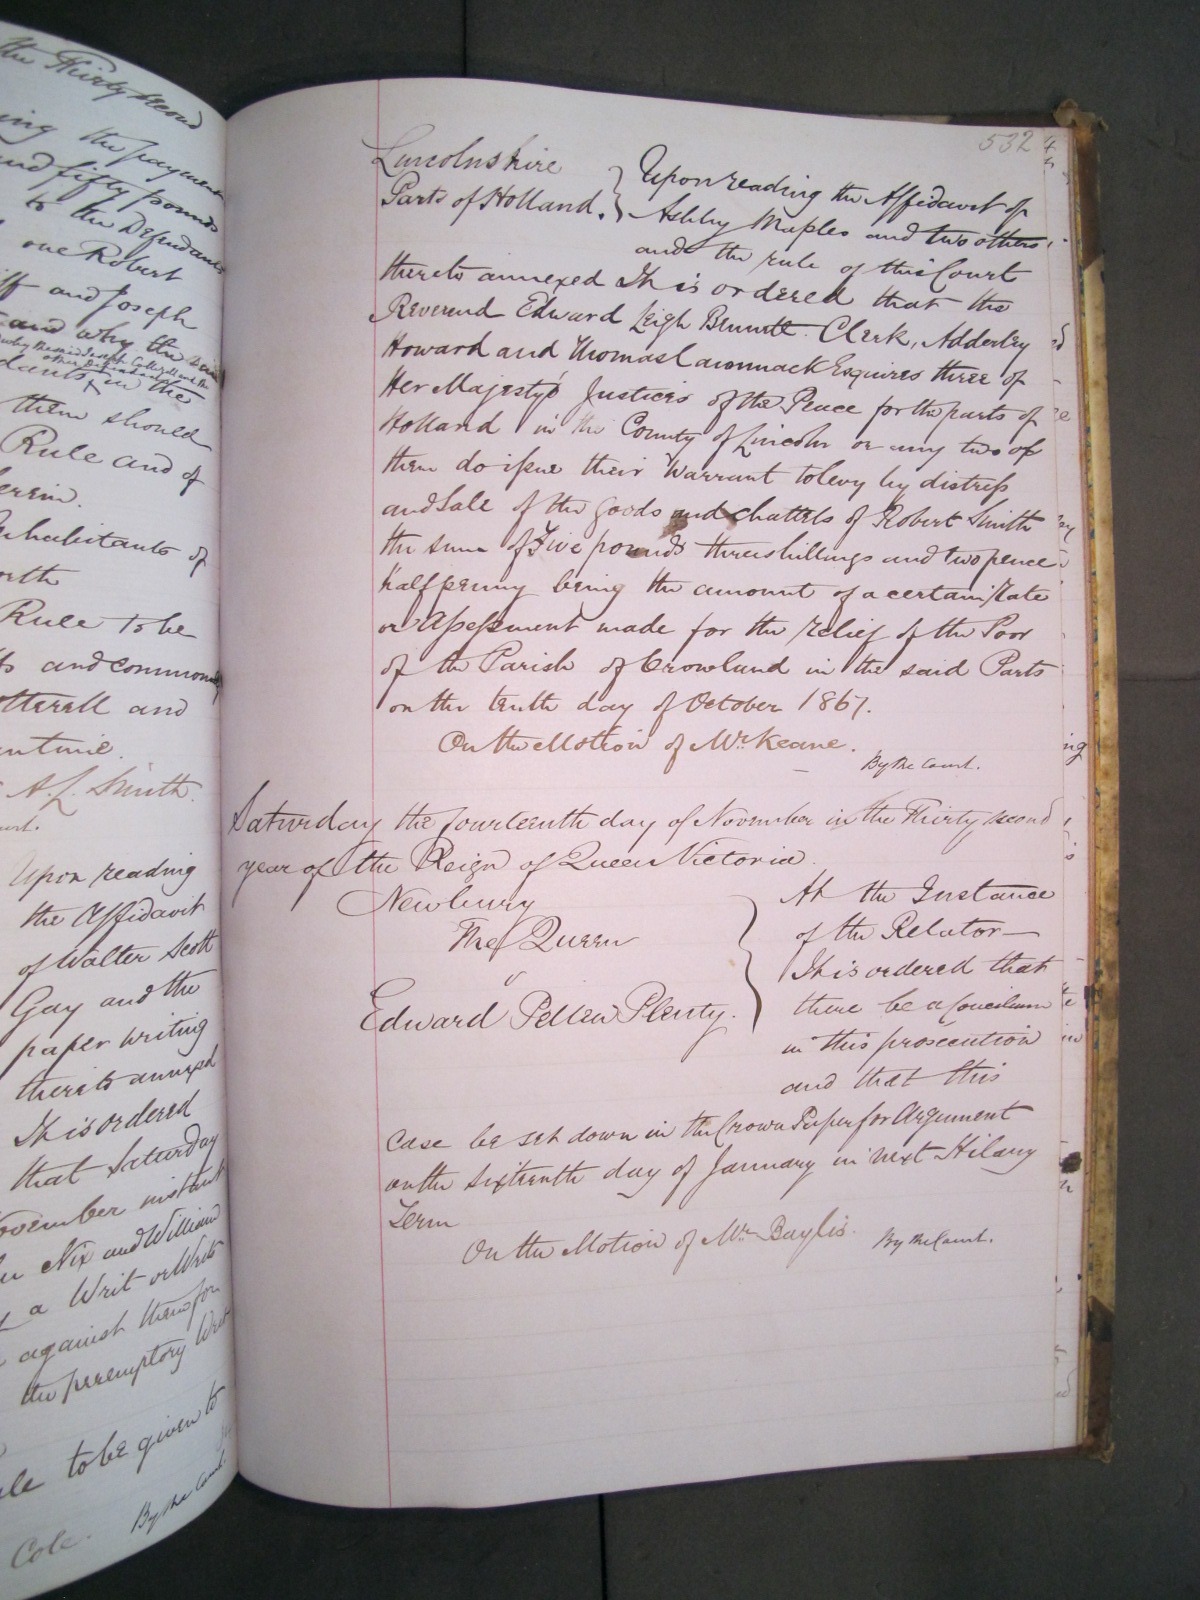 the Thirty second
ing the payment
and fifty pounds
to the Defendants
one Robert
iff and Joseph
and why the said
why the said Joseph
other Defendants
dants in the
them should
Rule and of
erein.
nhabitants of
orth
Rule to be
ts and commonly
tterell and
entine.
A. L. Smith.
urt.
Upon reading
the Affidavit
of Walter Scott
Gay and the
paper writing
thereto annexed
It is ordered
that Saturday
November instant
Nix and William
a Writ or Writs
against them for
the peremptory Writ
ule to be given to
By the Court
Cole.
532
Lincolnshire
Parts of Holland.
Upon reading the Affidavit of
Ashby Maples and two others
and the rule of this Court
thereto annexed It is ordered that the
Reverend Edward Leigh Bennett Clerk, Adderley
Howard and Thomas Cammack Esquires three of
Her Majesty's Justices of the Peace for the parts of
Holland in the County of Lincoln or any two of
them do issue their Warrant to levy by distress
and Sale of the goods and chattels of Robert Smith
the sum of Five pounds three shillings and two pence
halfpenny being the amount of a certain Rate
or Assessment made for the relief of the Poor
of the Parish of Crowland in the said Parts
on the tenth day of October 1867.
On the Motion of Mr. Keane.
By the Court.
Saturday the fourteenth day of November in the Thirty second
year of the Reign of Queen Victoria.
Newbury
The Queen
v
Edward Pellew Plenty.
At the Instance
of the Relator—
It is ordered that
there be a Concilium
in this prosecution
and that this
case be set down in the Crown Paper for Argument
on the sixteenth day of January in next Hilary
Term
On the Motion of Mr. Baylis.
By the Court.